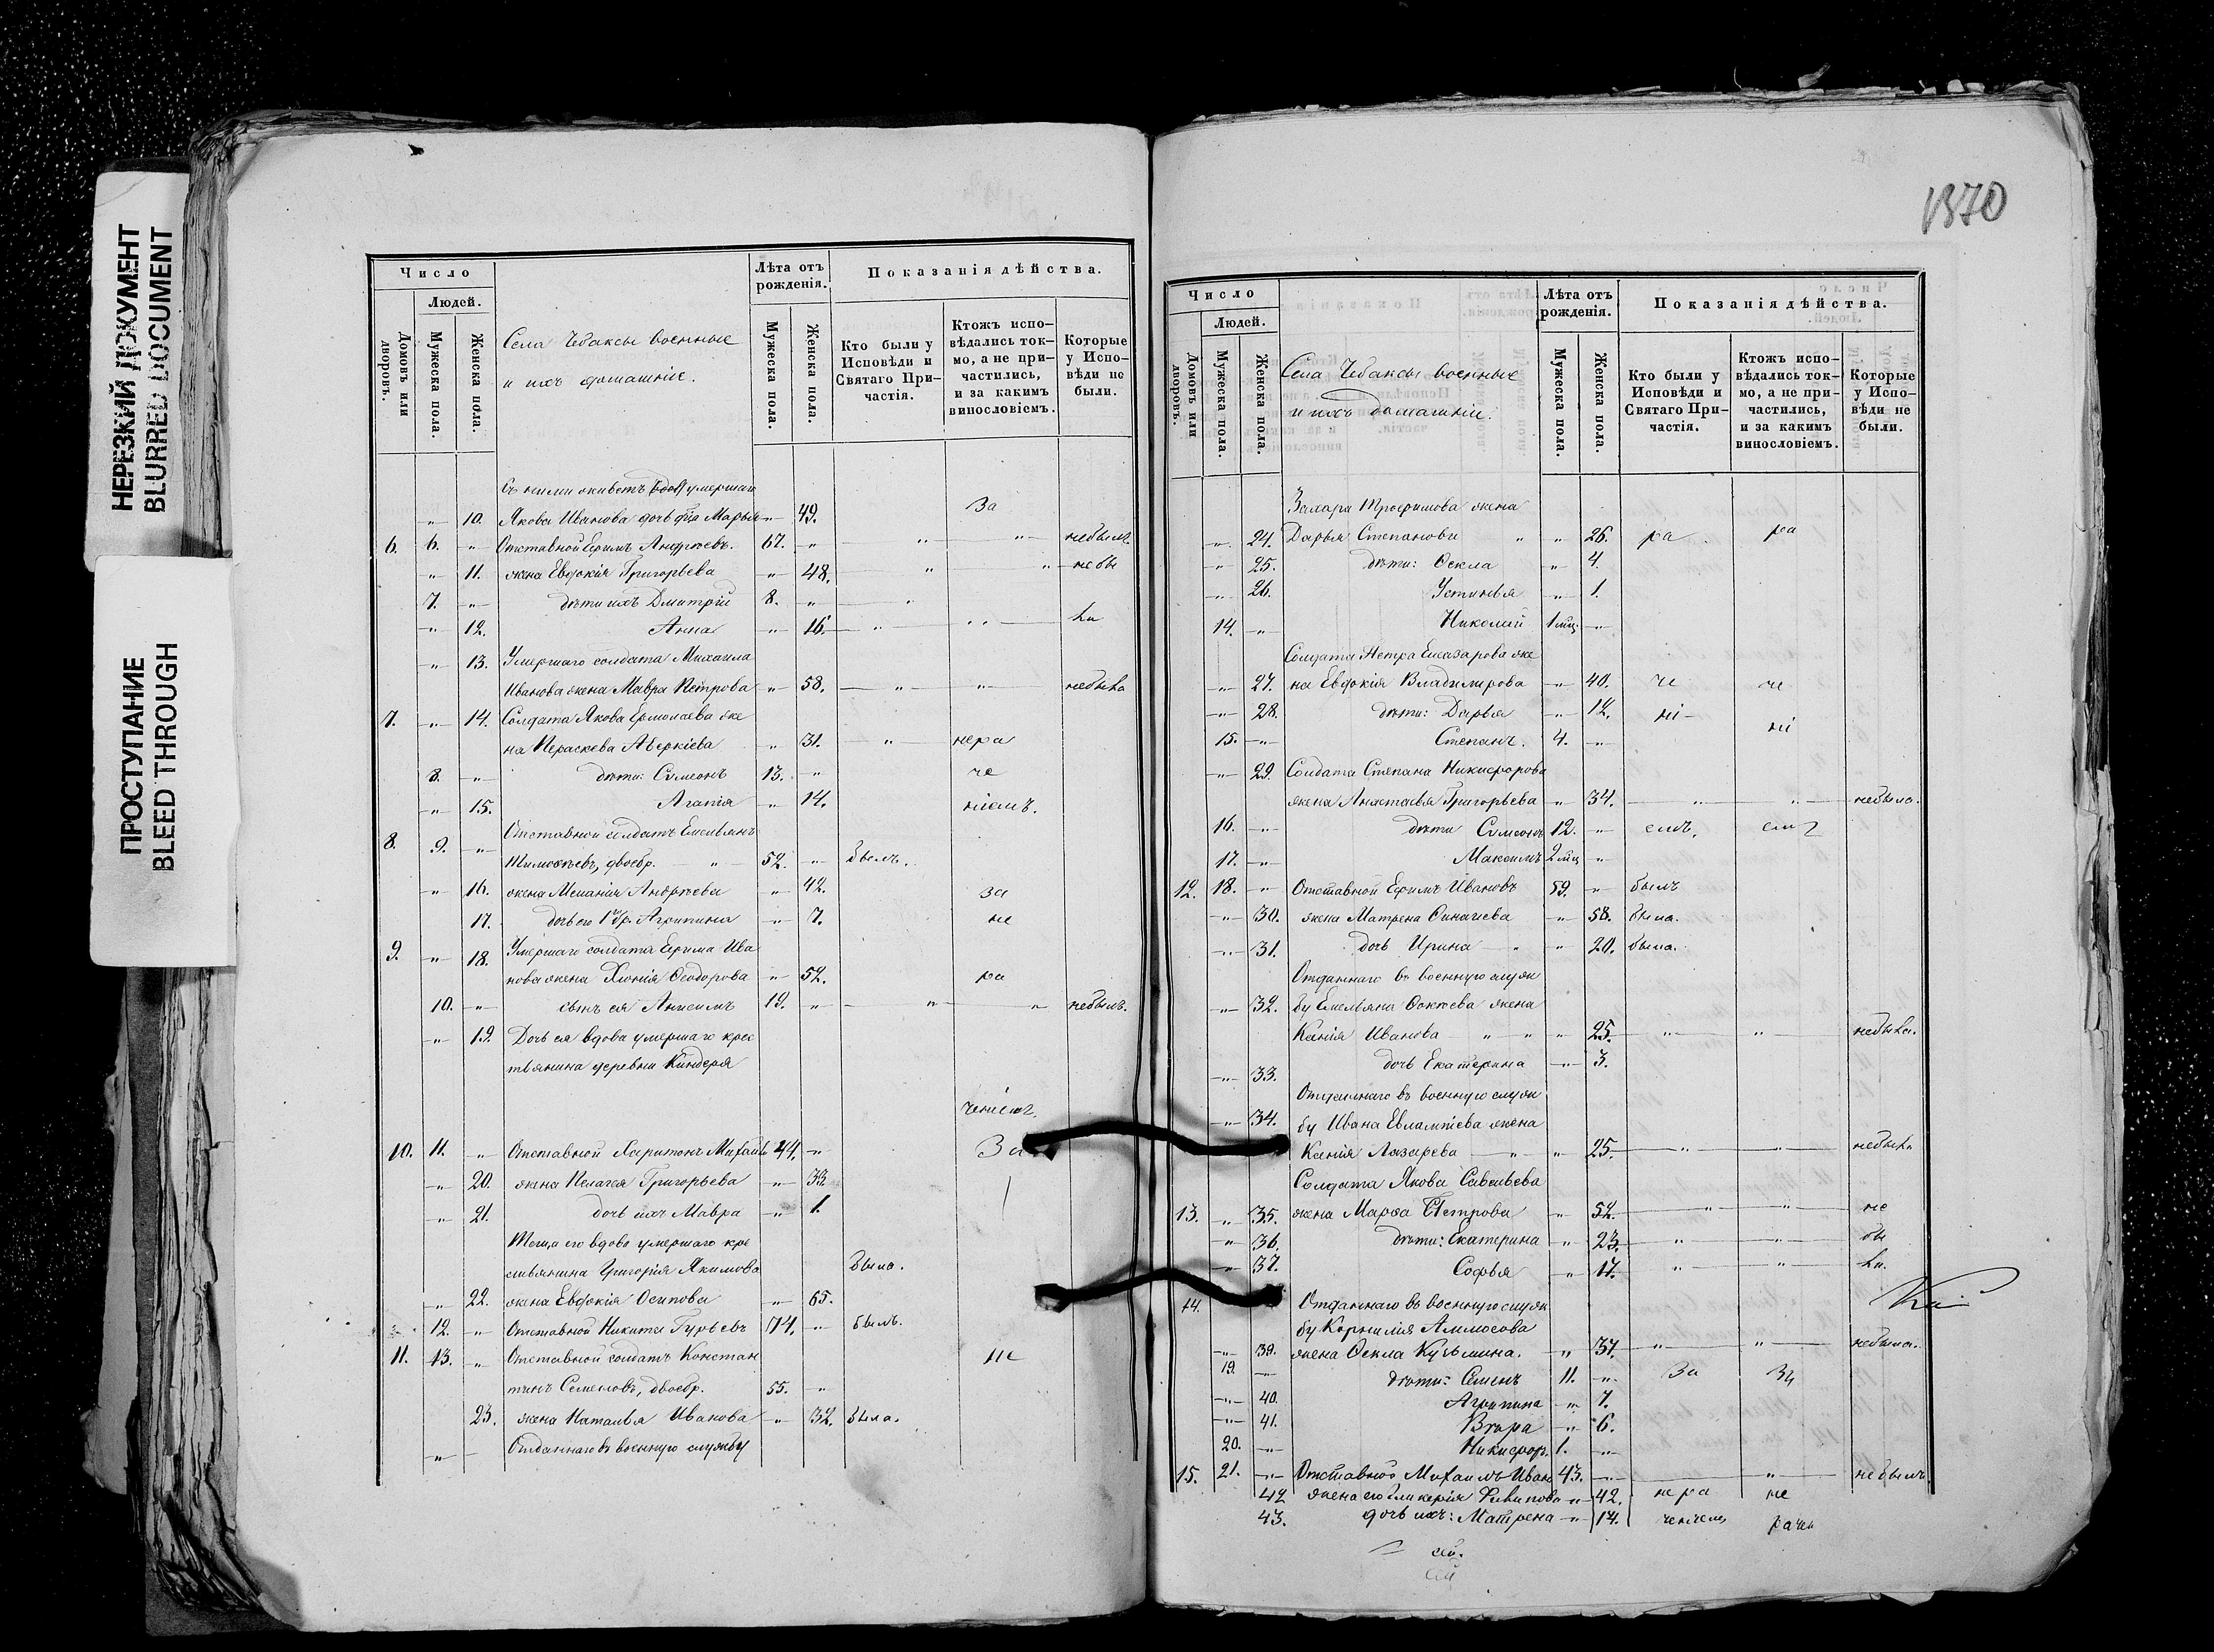 НЕРЕЗКИЙ ДОКУМЕНТ
BLURRED DOCUMENT
ПРОСТУПАНИЕ
BLEED THROUGH
Число
Людей.
Домовъ или дворовъ.
Мужеска пола.
Женска пола.
Села Чебаксы военные
и ихъ домашніе.
Лѣта отъ рожденія.
Мужеска пола.
Женска пола.
Показанія дѣйства.
Кто были у Исповѣди и Святаго Причастія.
Ктожъ исповѣдались токмо, а не причастились, и за какимъ винословіемъ.
Которые у Исповѣди не были.
Съ ними живетъ умершаго
„ 10. Якова Иванова дочь Марья „ 49. За
6. 6. „ Отставной Ефимъ Андреевъ. 67. „ „ „ небылъ.
„ 11. жена Евдокія Григорьева „ 48. „ „ небы
7. „ дѣти ихъ Дмитрій 8. „ „
„ 12. Анна „ 16. „ „ ла
„ 13. Умершаго солдата Михаила
Иванова жена Мавра Петрова „ 58. „ „ небыла
7. „ 14. Солдата Якова Ермолаева же
на Параскева Аверкіева „ 31. „ нера
8. „ дѣти: Сѵмеонъ 13. „ че
„ 15. Агапія „ 14. ніемъ.
8. 9. „ Отставной солдатъ Емельянъ
Тимоѳеевъ, двоебр. „ 52. „ былъ.
„ 16. жена Меланія Андреева „ 42. за
17. дочь его 1 бр. Агрипина „ 7. не
9. „ 18. Умершаго солдата Ефима Ива
нова жена Хіонія Ѳеодорова „ 52. ра
10. „ сынъ ея Анисимъ 19. „ „ „ небылъ.
„ 19. Дочь ея вдова умершаго крес
тьянина деревни Киндеря
ченіемъ.
10. 11. „ Отставной Харитонъ Михаил 44. „ За
„ 20. жена Пелагея Григорьева „ 33.
„ 21. дочь ихъ Мавра „ 1.
Теща его вдова умершаго кре
стьянина Григорія Якимова была.
„ 22. жена Евдокія Осипова „ 65.
12. „ Отставной Никита Гурьевъ 74. „ былъ.
11. 13. „ Отставной солдатъ Констан не
тинъ Семеновъ, двоебр. 55. „
23. жена Наталья Иванова „ 32. была.
„ Отданнаго въ военную службу
1370
Число
Людей.
Домовъ или дворовъ.
Мужеска пола.
Женска пола.
Села Чебаксы военные
и ихъ домашніе.
Лѣта отъ рожденія.
Мужеска пола.
Женска пола.
Показанія дѣйства.
Кто были у Исповѣди и Святаго Причастія.
Ктожъ исповѣдались токмо, а не причастились, и за какимъ винословіемъ.
Которые у Исповѣди не были.
Захара Трофимова жена
„ 24. Дарья Степанова „ „ 26. ра ра
„ 25. дѣти: Ѳекла „ 4.
„ 26. Устинья „ 1.
14. „ Николай 1 мц. „
Солдата Петра Елеазарова же
„ 27. на Евдокія Владимірова „ 40. че че
„ 28. дѣти: Дарья „ 12. ні ні
15. „ Степанъ. 4. „
„ 29. Солдата Степана Никифорова
жена Анастасья Григорьева „ 34. „ „ небыла.
16. „ дѣти Сѵмеонъ 12. „ емъ. емъ
17. „ Максимъ 2 мц „
12. 18. „ Отставной Ефимъ Ивановъ 59. „ былъ
„ 30. жена Матрена Игнатьева „ 58. была.
„ 31. дочь Ирина „ „ 20. была.
Отданнаго въ военную служ
„ 32. бу Емельяна Ѳокѣева жена
Ксенія Иванова „ „ „ 25. „ „ небыла.
„ 33. дочь Екатерина „ 3.
Отданнаго въ военную служ
„ 34. бу Ивана Евлампіева жена
Ксенія Лазарева „ „ 25. „ „ небыла
Солдата Якова Савельева
13. „ 35. жена Марѳа Петрова „ 52. „ „ не
„ 36. дѣти: Екатерина „ 23. „ „ бы
„ 37. Софья „ 17. „ „ ла.
14. Отданнаго въ военную служ
бу Корнилія Аммосова
„ 39. жена Ѳекла Кузьмина. „ 37. „ „ небыла.
19. „ дѣти: Семенъ 11. „ За За
„ 40. Агрипина „ 7.
„ 41. Вѣра „ 6.
20. „ Никифоръ. 1. „
15. 21. „ Отставной Михаилъ Иван 43. „ „ небылъ.
42 жена его Гликерія Филипова „ 42. нера не
43. дочь ихъ: Матрена „ 14. ченіемъ рачен